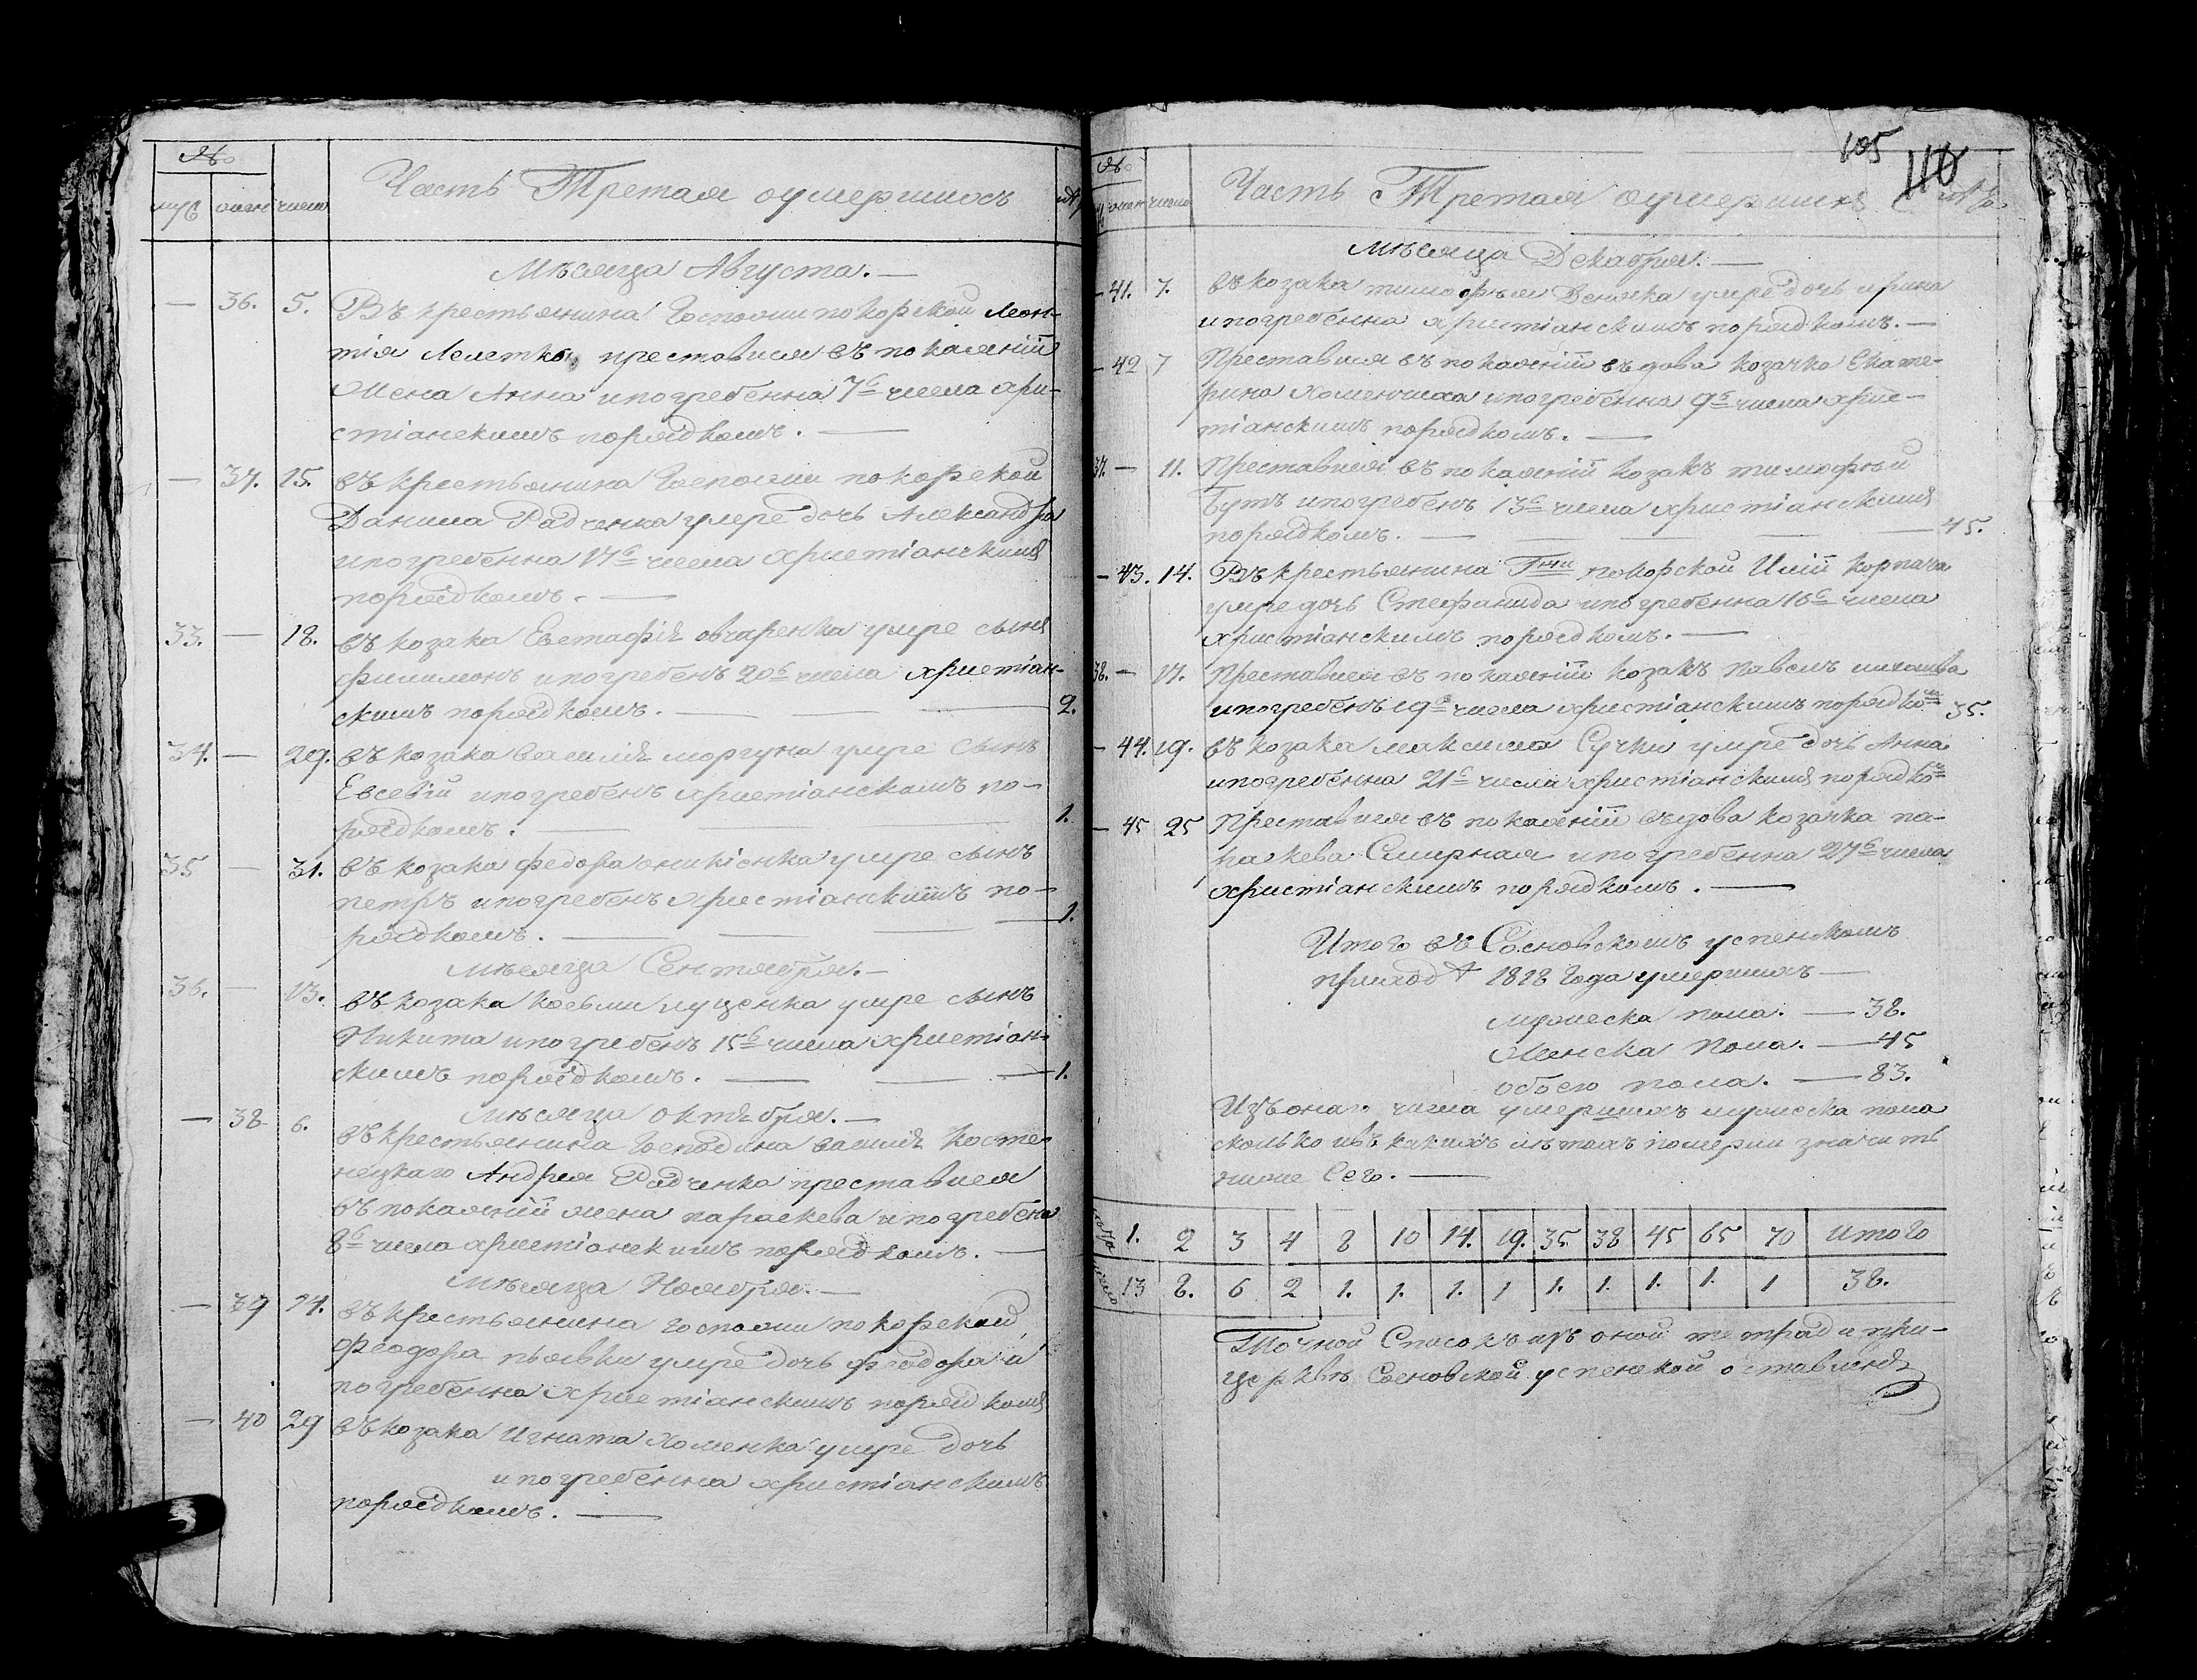 №
муж женс число Часть Третая оумершихъ лѣта
Мѣсяца Августа. —
— 36. 5. Въ крестьянина Госпожи покорской Леон-
тія Лелетка преставися въ покаянїи
жена Анна ипогребенна 7го числа хри-
стіанскимъ порядкомъ. —
— 37. 15. въ крестьянина Госпожи покорской
Данила Радченка умре дочь Александра
ипогребенна 17го числа христіанскимъ
порядкомъ. —
33. — 18. въ козака Евстафія овчаренка умре сынъ
филимонъ ипогребенъ 20го числа христіан-
скимъ порядкомъ. — — — 2.
34. — 29. въ козака василія моргуна умре сынъ
Евсевій ипогребенъ христіанскимъ по-
рядкомъ. — — 1.
35 — 31. въ козака федора оникіенка умре сынъ
петръ ипогребенъ христіанскимъ по-
рядкомъ. — — — 1.
Мѣсяца Сентября. —
36. — 13. въ козака косьми луценка умре сынъ
Никита ипогребенъ 15го числа христіан-
скимъ порядкомъ. — — — 1.
Мѣсяца октября. —
— 38 6. въ крестьянина Господина василія косте-
нецкаго Андрея Радченка преставися
въ покаянїи жена параскева ипогребена
8го числа христіанскимъ порядкомъ. —
Мѣсяца Ноября. —
— 39 24. въ крестьянина госпожи покорской
феодора пьявки умре дочь феодора и
погребенна христіанскимъ порядкомъ
— 40 29 въ козака Игната Хоменка умре дочь
ипогребенна христіанскимъ
порядкомъ. —
105
110
№
женс число Часть Третая оумершихъ лѣта
Мѣсяца Декабря. —
— 41. 7. въ козака тимофѣя Деника умре дочь ирина
ипогребенна христіанскимъ порядкомъ. —
— 42 7 Преставися въ покаянїи въдова козачка Екате-
рина Хоменчиха ипогребенна 9го числа хрис-
тіанскимъ порядкомъ. —
37. — 11. Преставися въ покаянїи козакъ тимофѣй
Бутъ ипогребенъ 13го числа христіанскимъ
порядкомъ. — — — — 45.
— 43. 14. Въ крестьянина Гжи покорской Илїи корпача
умре дочь Стефанида ипогребенна 16го числа
христіанскимъ порядкомъ. —
38. — 17. Преставися въ покаянїи козакъ павелъ
ипогребенъ 19го числа христіанскимъ порядком 35.
— 44. 19. въ козака максима Сучки умре дочь Анна
ипогребенна 21го числа христіанскимъ порядком
— 45 25 Преставися въ покаянїи въдова козачка па-
раскева Смирная ипогребенна 27го числа
христіанскимъ порядкомъ. —
Итого въ Сосновскомъ успенскомъ
приходѣ 1818 года умершихъ —
мужеска пола. — 38.
Женска пола. — 45
обоего пола. — 83.
Изъонаго числа умершихъ мужеска пола
сколько ивъ какихъ лѣтахъ померли значитъ
ниже сего. —
лѣта 1. 2 3 4 8 10 14. 19. 35. 38 45 65 70 итого
число 13 8. 6 2 1. 1. 1. 1 1. 1. 1. 1. 1 38.
Точной Списокъ изъ оной тетради при
церквѣ Сосновской успенской оставленъ